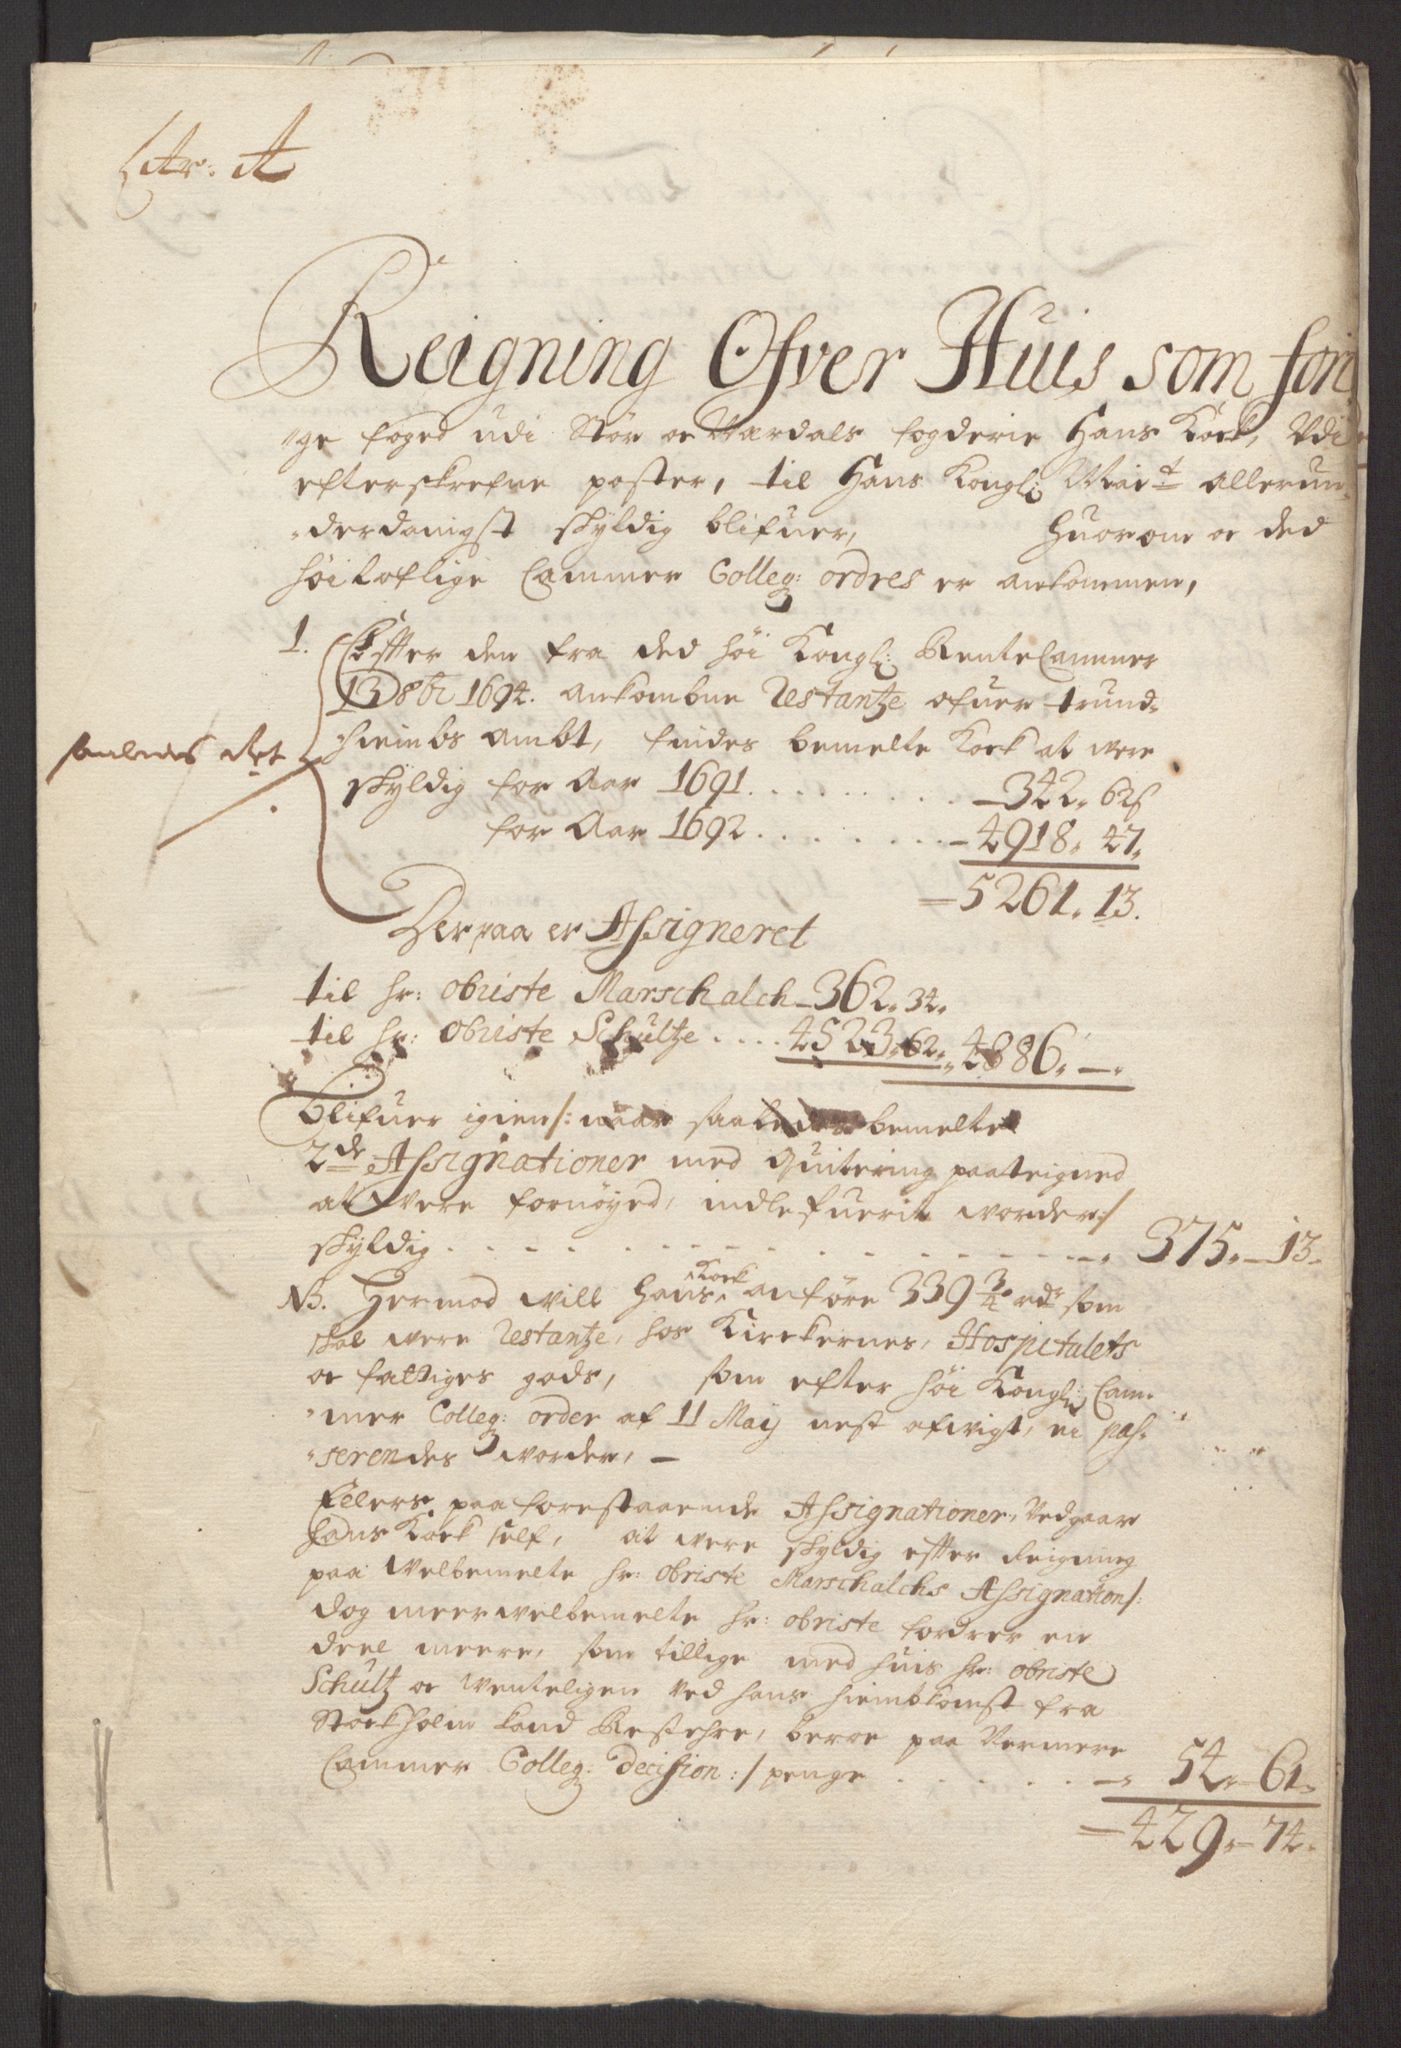 Litr: A
Reigning Ofver Huis som fori¬
"ge foged udi Stør oc Værdals fogderie Hans Koek, Udi
efterskrefne poster, til Hans Kongl: Mait allerun¬
"derdanigst skyldig blifuer, huorom oc ded
høiloflige Cammer Colleg: ordres er ankommen,
1. Effter den fra ded høi Kongl: RenteCammer
13 8br 1694. ankombne Restantze ofuer trund¬
hiembs ambt, findes bemelte Koek at were
saaledes Ret
skyldig for Aar 1691 . . . . . . . . . — 342„ 62s
for Aar 1692 . . . . . . . . — 4918„ 47„
— 5261„ 13.
Derpaa er Assigneret
til hr: obriste Marschalch — 362„ 34„
til hr: obriste Schultze . . . . 4523„ 62„ 4886„ —„
blifuer igien /: naar saaledes bemelte
2de Assignationer med Quitering paateigned
at were fornøyed, indlefuerit worder :/
skyldig . . . . . . . . . . . . . . —„ 375„ — 13„
NB. Hermod will Hans Koek anføre 339 3/4 rdr som
skal were Restantze, hos Kirckernes, Hospitalets
oc fattiges gods, som efter høi Kongl: Cam¬
"mer Colleg: order af 11 Maij nest afwigt, ei pas¬
"serendes worder, —
Ellers paa forestaaende Assignationer, Vedgaar
Hans Koek self, at were skyldig effter Reigning
paa Welbemelte hr: obriste Marschalchs Assignation /:
dog meerwelbemelte hr: obriste fordrer en
deel meere, som tillige med huis hr: obriste
Schultz oc wenteligen ved hans hiembkomst fra
Stockholm kand Restehre, beroe paa Vermere
Cammer Colleg: decision :/ penge . . . . . —„ 54„ — 61„
— 429„ — 74„